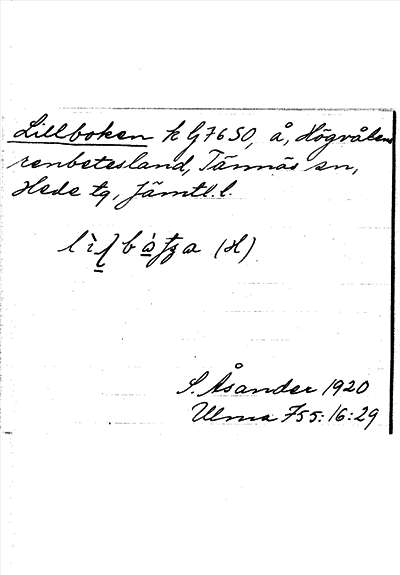 Lillboken k G7650, å, Högvålens
renbetesland, Tännäs sn,
Hede tg, Jämtl. l.
(H)
S. Åsander 1920
Ulma 755:16:29